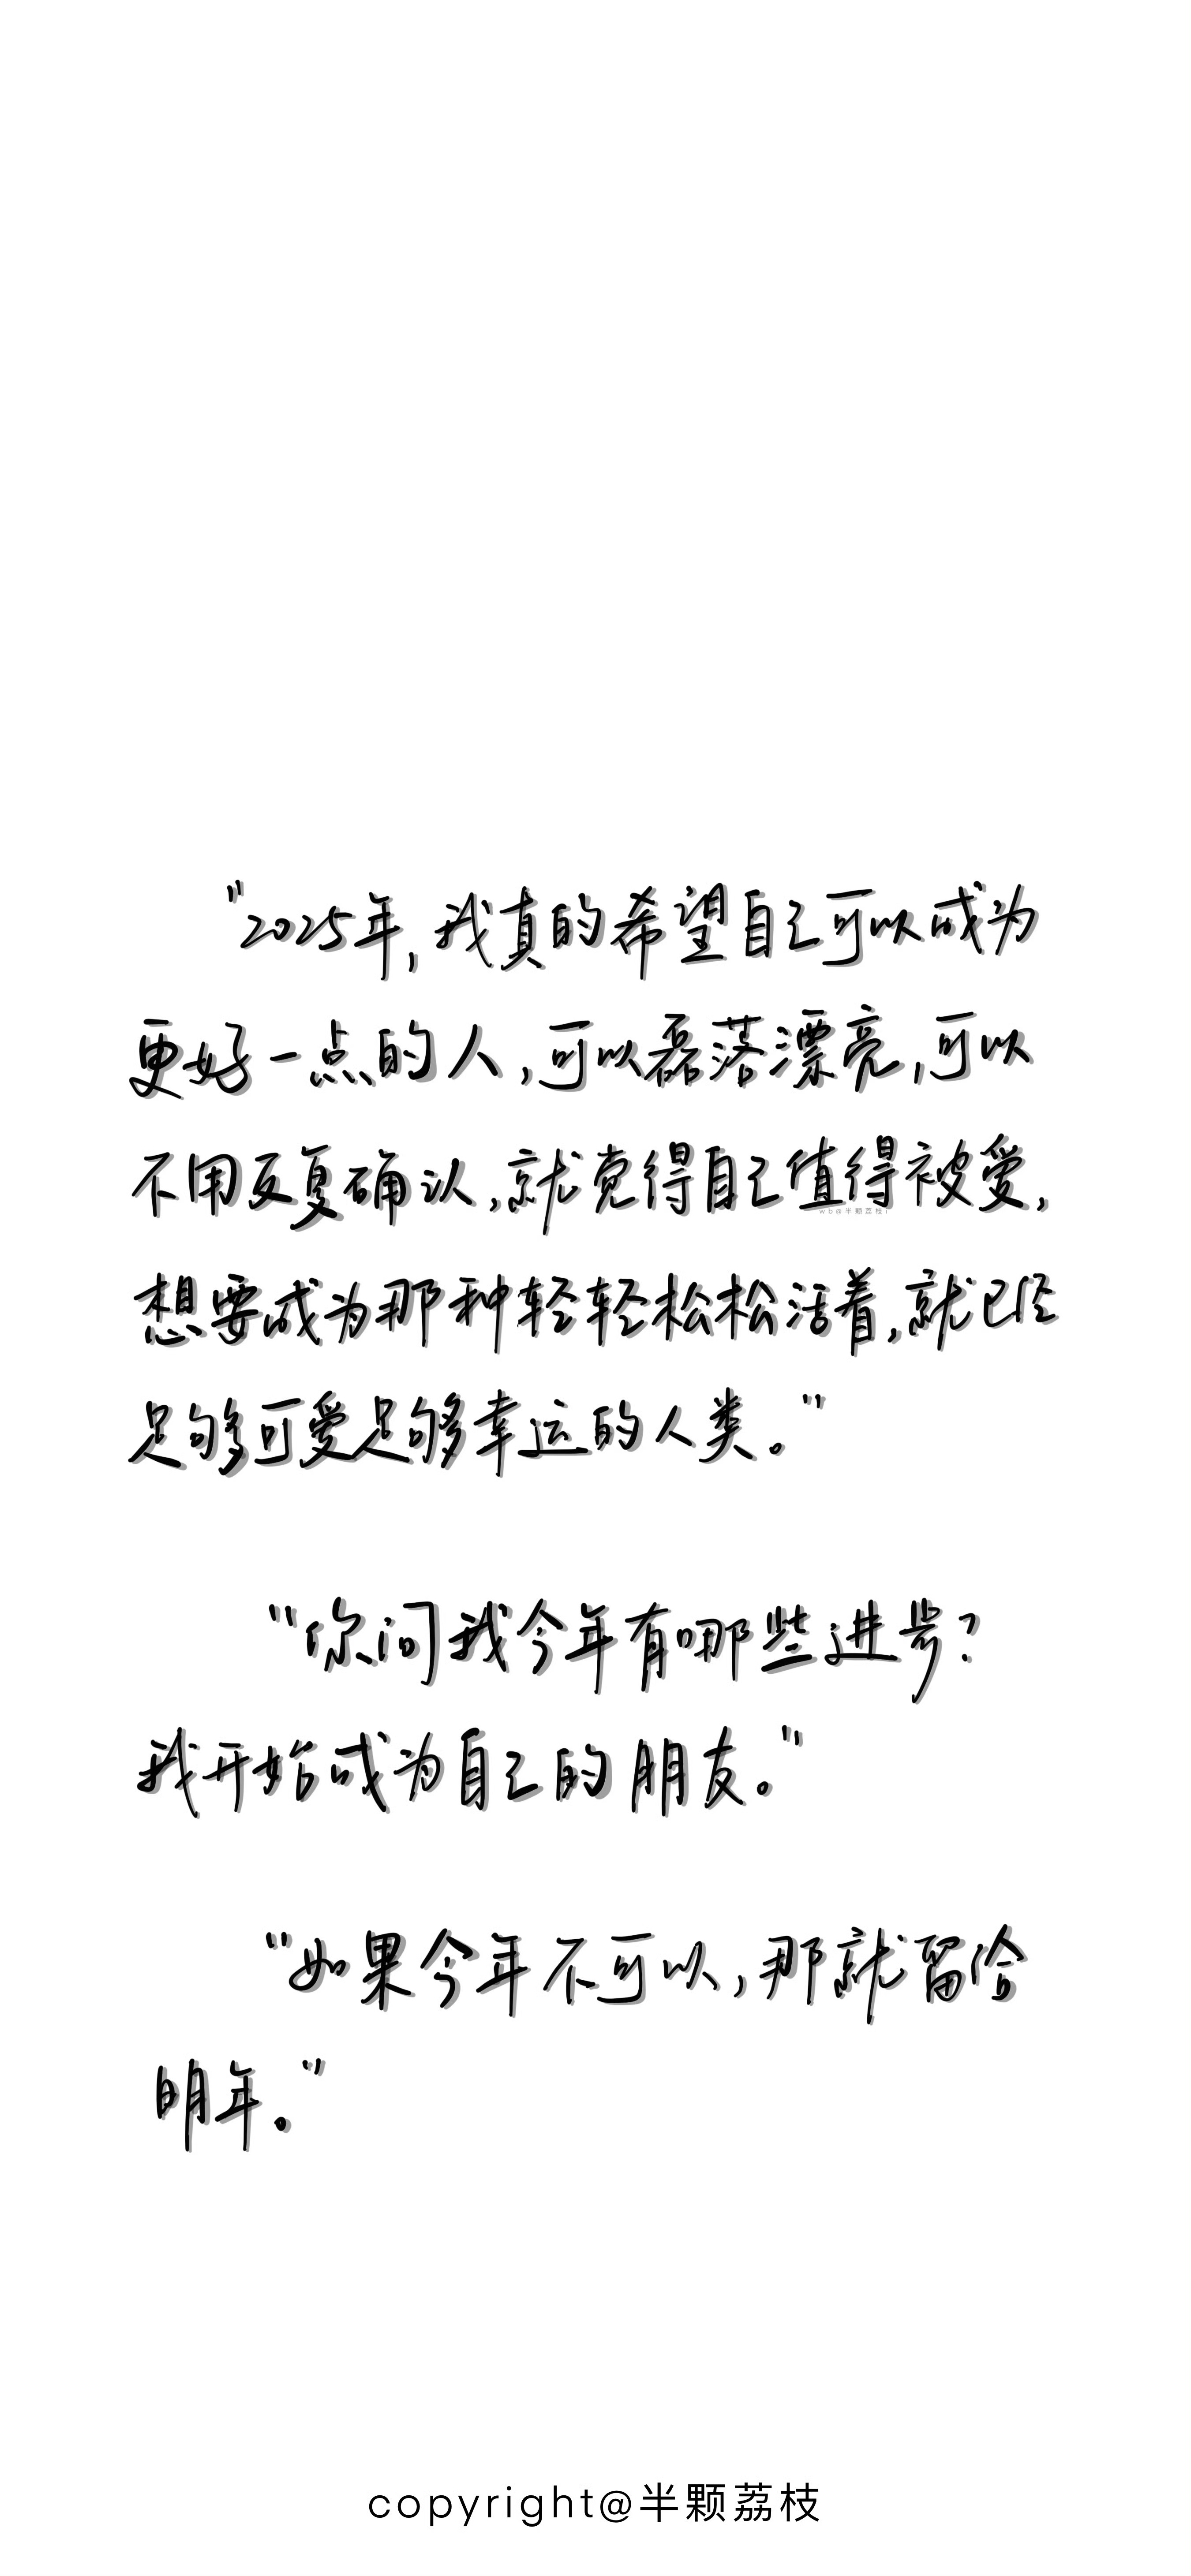 “2025年,我真的希望自己可以成为
更好一点的人,可以磊落漂亮,可以
不用反复确认,就觉得自己值得被爱,
wb@半颗荔枝r
想要成为那种轻轻松松活着,就已经
足够可爱足够幸运的人类。”
“你问我今年有哪些进步?
我开始成为自己的朋友。”
“如果今年不可以,那就留给
明年。”
copyright@半颗荔枝